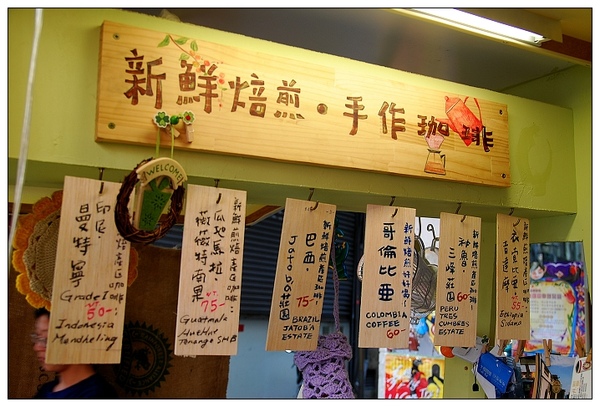 新鮮焙煎・手作珈琲
WELCOME
印尼.
曼特寧
Grade I
50-
Indonesia
Mandheling
新鮮焙煎產區咖啡
瓜地馬拉.
薇薇特南果
75-
Guatemala
Huehue
Tenango SHB
新鮮焙煎產區咖啡
巴西.
Jatoba莊園
75-
BRAZIL
JATOBA
ESTATE
哥倫比亞
COLOMBIA
COFFEE
60-
新鮮焙煎
祕魯.
三峰莊園
60-
PERU
TRES
CUMBRES
ESTATE
衣索比亞
55-
Ethiopia
Sidamo